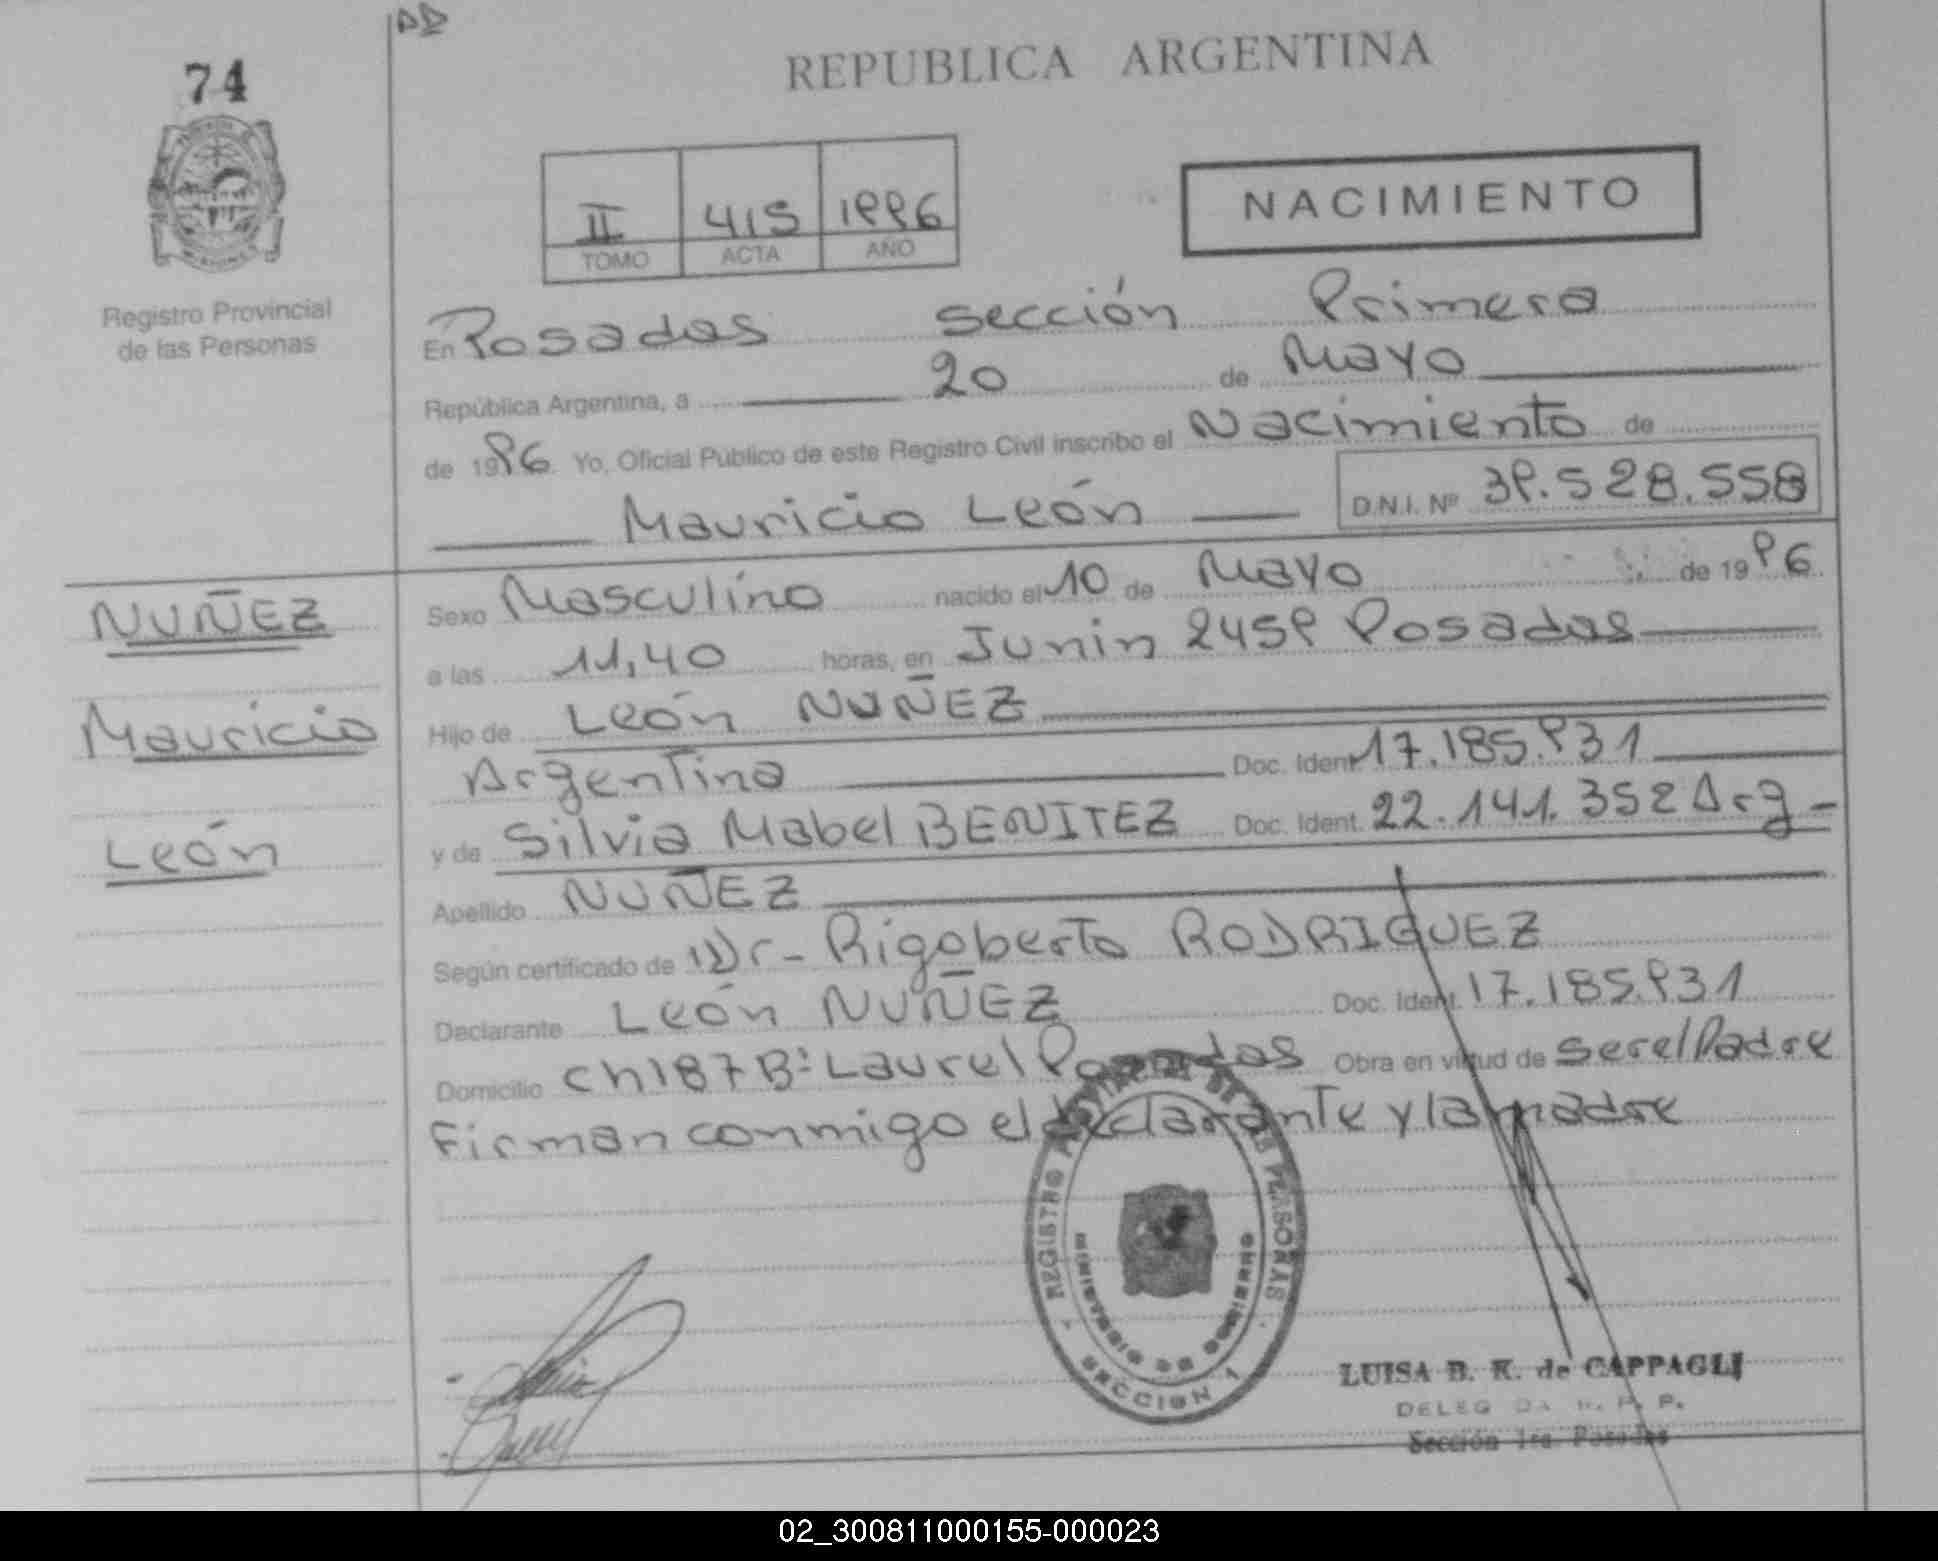 74
REPUBLICA ARGENTINA
II 415 1996
TOMO ACTA AÑO
NACIMIENTO
Registro Provincial
de las Personas
En Posadas sección Primera
República Argentina, a 20 de Mayo
de 1996. Yo, Oficial Público de este Registro Civil inscribo el Nacimiento de
Mauricio León D.N.I. Nº 39.528.558
NUÑEZ
Mauricio
León
Sexo Masculino nacido el 10 de Mayo de 1996.
a las 11,40 horas, en Junin 2459 Posadas
Hijo de León NUÑEZ
Argentina Doc. Ident. 17.185.931
y de Silvia Mabel BENITEZ Doc. Ident. 22.141.352 Arg-
Apellido NUÑEZ
Según certificado de Dr- Rigoberto RODRIGUEZ
Declarante León NUÑEZ Doc. Ident. 17.185.931
Domicilio ch187Bº Laurel Posadas Obra en virtud de ser el Padre
Firman conmigo el declarante y la madre
REGISTRO DE LAS PERSONAS
MINISTERIO DE GOBIERNO
SECCION 1
LUISA B. K. de CAPPAGLI
R. P. P.
Sección 1ra. Posadas
02_300811000155-000023